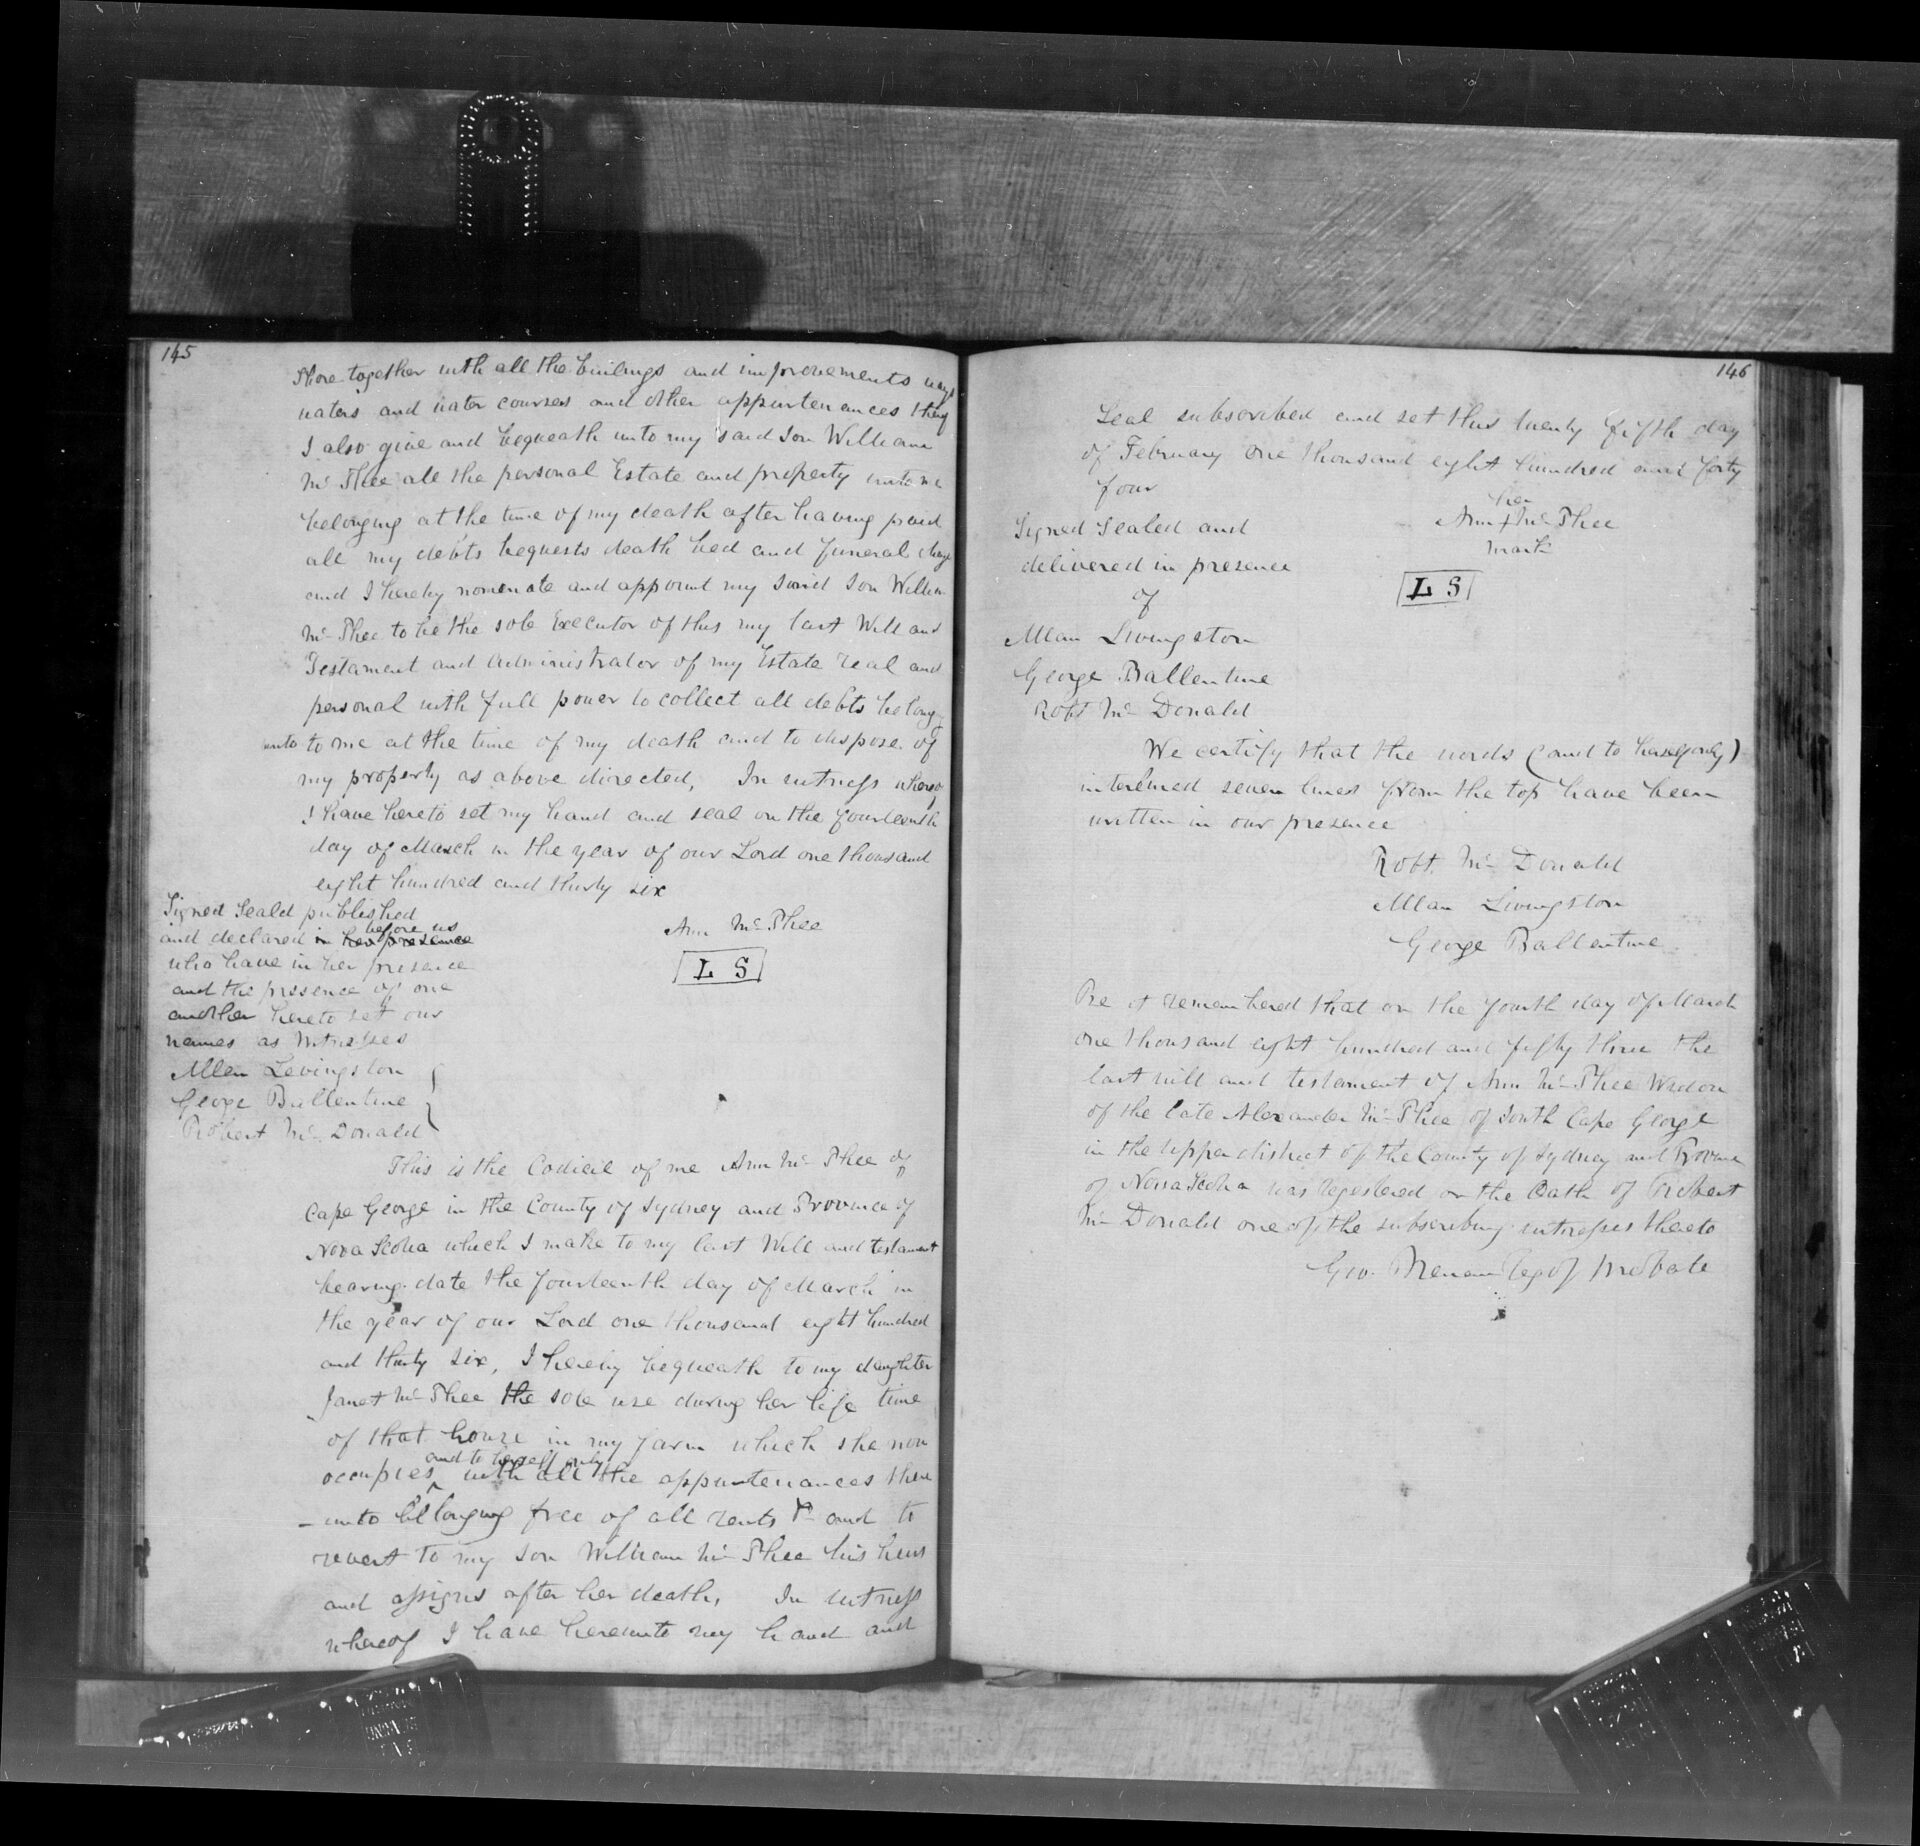 145
Shore together with all the builings and improvements ways
waters and water courses and other appurtenances
I also give and bequeath unto my said Son William
Mc Phee all the personal Estate and property unto me
belonging at the time of my death after having paid
all my debts bequests death bed and funeral charge
and I hereby nomenate and appoint my said Son William
Mc Phee to be the sole Executor of this my last Will and
Testament and administrator of my Estate real and
personal with full power to collect all debts belong
unto to me at the time of my death and to dispose of
my property as above directed, In witness whereof
I have hereto set my hand and seal on the fourteenth
day of March in the year of our Lord one thousand
eight hundred and thirty six
Signed Seald published
before us
and declared in her presence
who have in her presence
and the presence of one
another hereto set our
names as witnesses
Allen Levingston
George Ballentine
Robert Mc Donald
Ann Mc Phee
L S
This is the Codicil of me Ann Mc Phee of
Cape George in the County of Sydney and Province of
Nova Scotia which I make to my last Will and testament
bearing date the fourteenth day of March in
the year of our Lord one thousand eight hundred
and thirty six, I hereby bequeath to my daughter
Janet Mc Phee the sole use during her life time
of that house in my farm which she now
and to herself only
occupies ^ with all the appurtenances there
- unto belonging free of all rents &c and to
revert to my son William Mc Phee his heirs
and assigns after her death, In witness
whereof I have hereunto my hand and
146
Seal subscribed and set this twenty fifth day
of February one thousand eight hundred and forty
four
her
Ann + Mc Phee
mark
L S
Signed Sealed and
delivered in presence
of
Allan Livingston
George Ballentine
Robt Mc Donald
We certify that the words (and to herself only)
interlined seven lines from the top have been
written in our presence
Robt. Mc Donald
Allan Livingston
George Ballentine
Be it remembered that on the fourth day of March
one thousand eight hundred and fifty three the
last will and testament of Ann Mc Phee Widow
of the late Alexander Mc Phee of South Cape George
in the upper district of the County of Sydney and Province
of Nova Scotia was registered on the Oath of Robert
Mc Donald one of the subscribing witnesses thereto
Geo. Reg of Probate